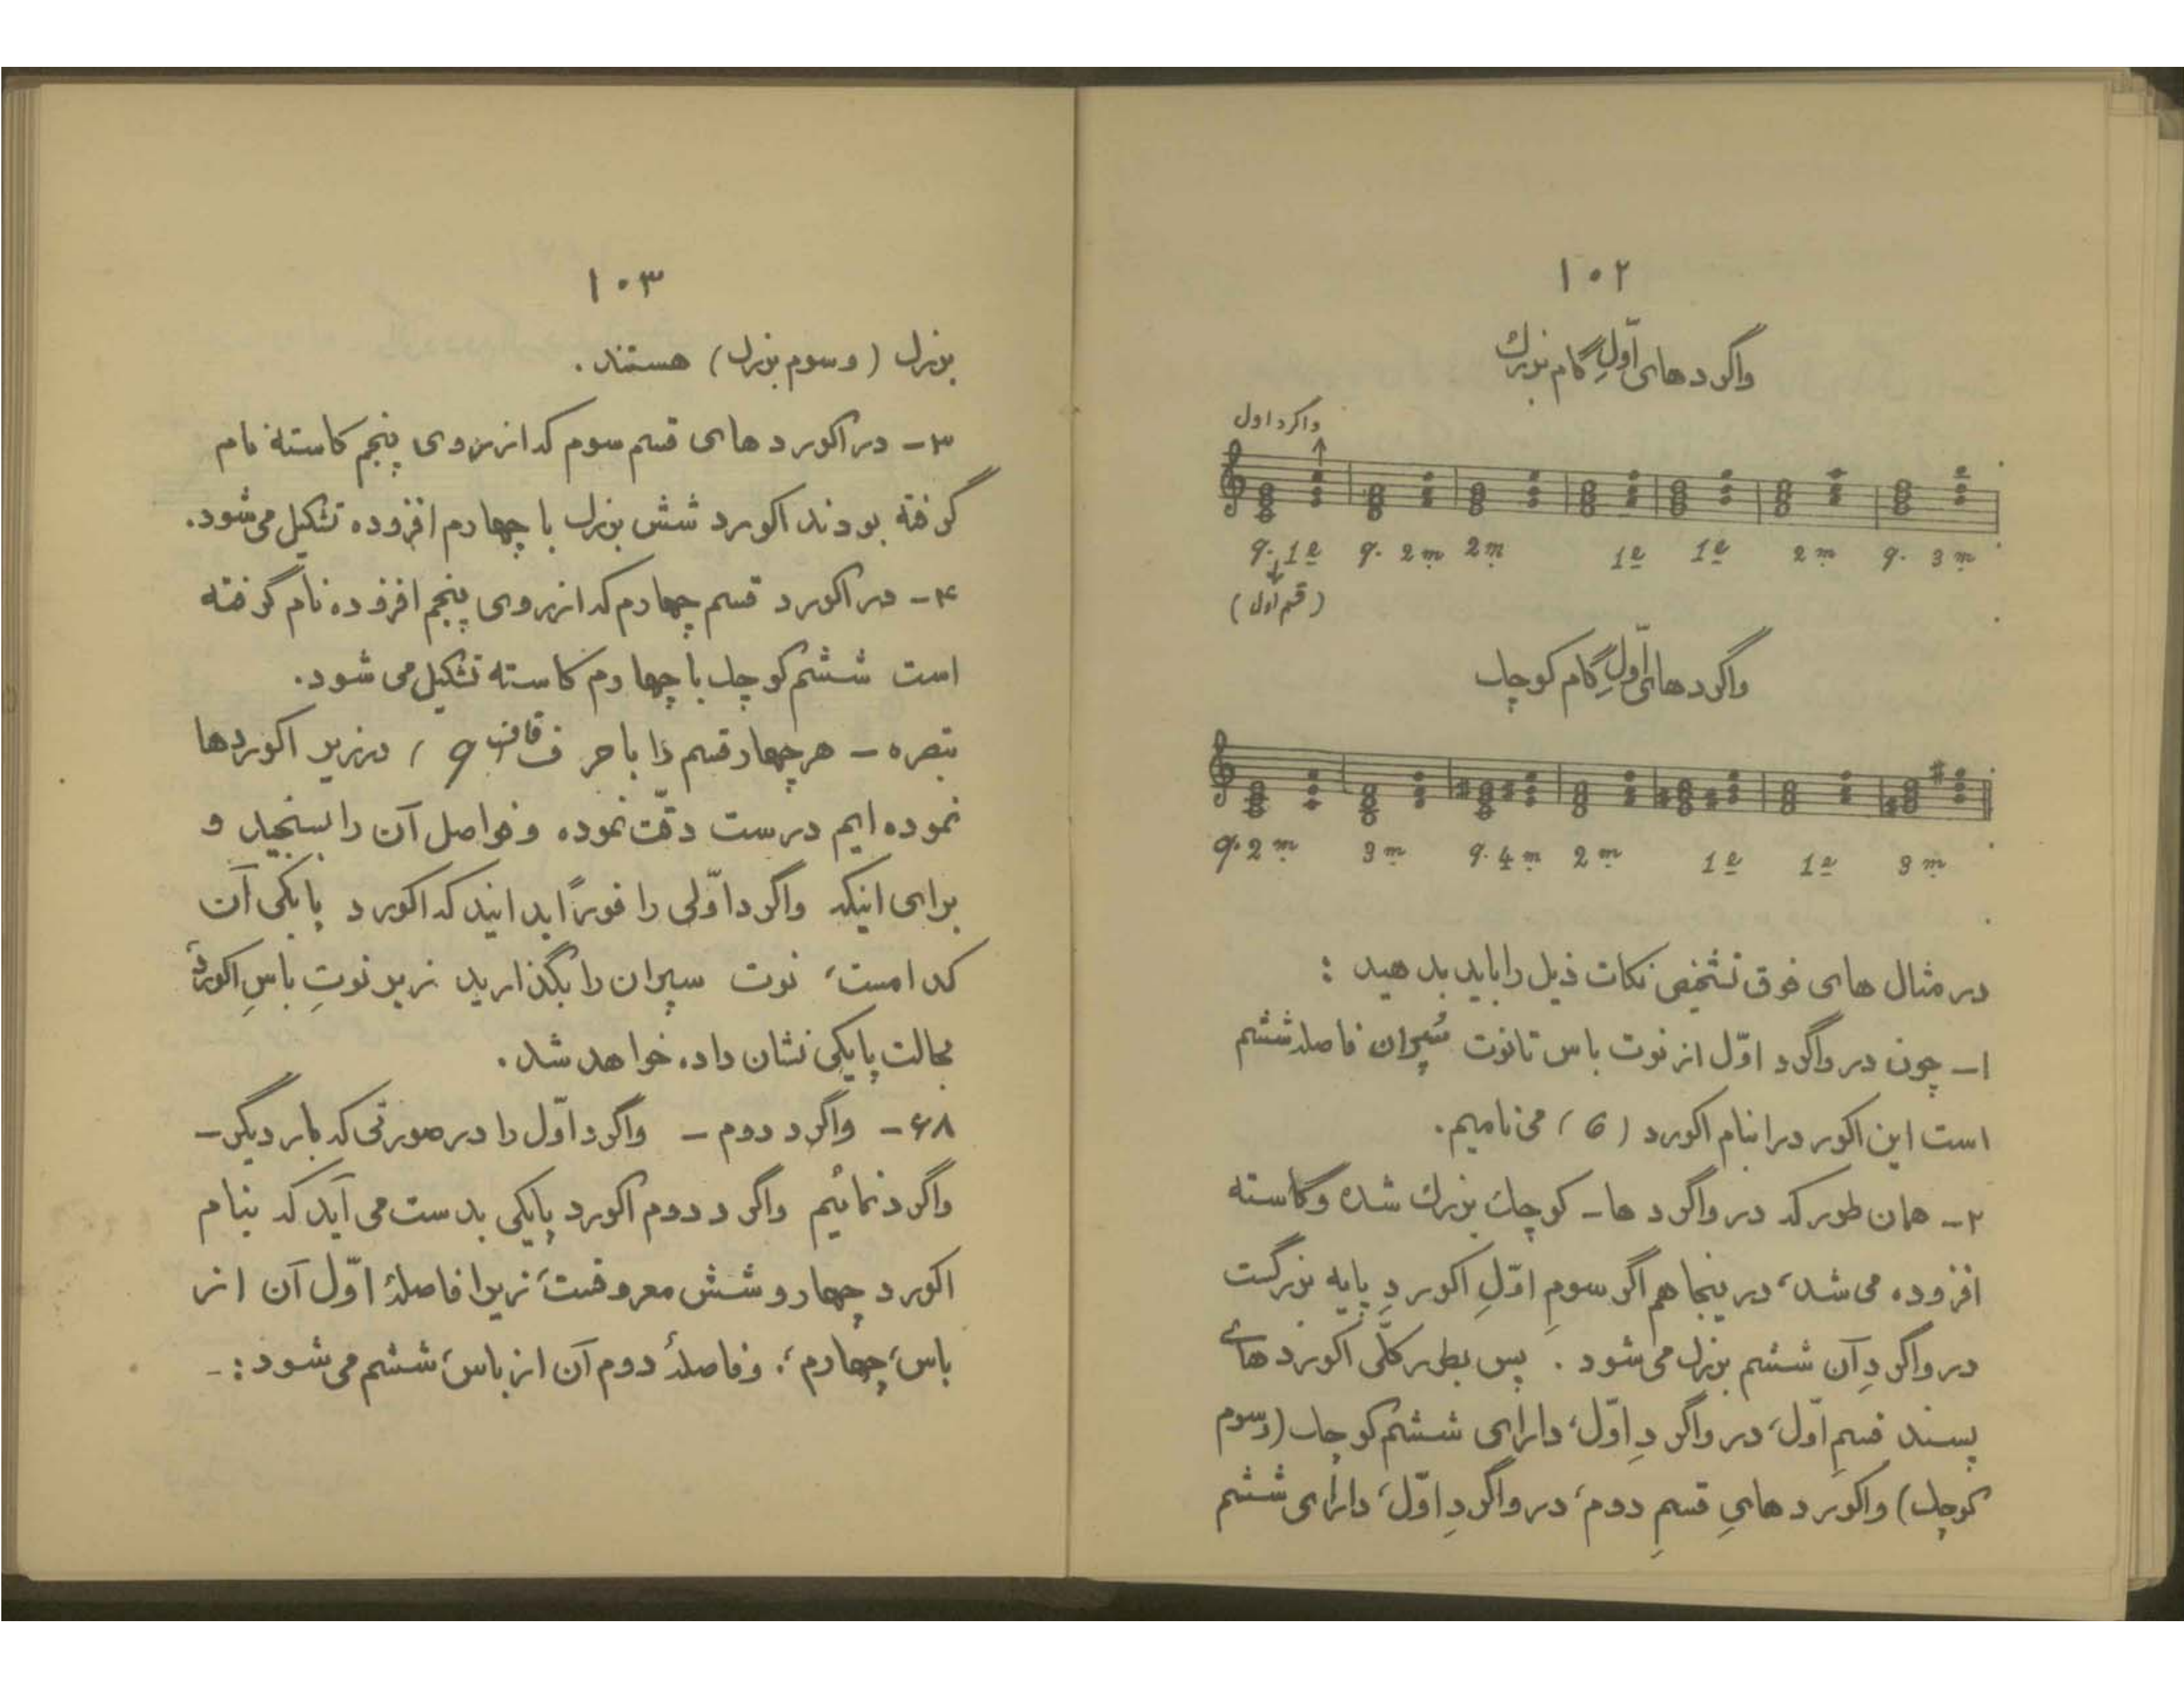 ۱۰۲
واگرد های اوّلِ گام بزرك
واگرد اول
q. 1e q. 2m 2m 1e 1e 2m q. 3m
(قسم اول)
واگرد های اوّلِ گام کوچك
q. 2m 3m q. 4m 2m 1e 1e 3m
در مثال های فوق تشخیص نکات ذیل را باید بدهید :
۱- چون در واگرد اوّل از نوت باس تا نوت سُپران فاصله ششم
است این اکورد را بنام اکورد (6) می نامیم.
۲- همان طور که در واگرد ها- کوچك بزرك شده و کاسته
افزوده می شد، در ینجا هم اگر سومِ اوّلِ اکوردِ پایه بزرگست
در واگردِ آن ششم بزرك می شود . پس بطور کلّی اکورد های
پسند قسمِ اوّل، در واگردِ اوّل، دارای ششم کوچك (و سوم
کوچك) و اکورد هایِ قسمِ دوم، در واگردِ اوّل، دارای ششم
۱۰۳
بزرك (و سوم بزرك) هستند .
۳- در اکورد های قسم سوم که از روی پنجم کاسته نام
گرفته بودند اکورد شش بزرك با چهارم افزوده تشکیل می شود.
۴- در اکورد قسم چهارم که از روی پنجم افزوده نام گرفته
است ششم کوچك با چهارم کاسته تشکیل می شود.
تبصره - هر چهار قسم را با حرف قاف (q) در زیر اکوردها
نموده ایم درست دقّت نموده و فواصل آن را بسنجید و
برای اینکه واگرد اوّلی را فوراً بدانید که اکورد پایکی آن
کدامست، نوت سپران را بگذارید زیر نوتِ باسِ اکورد
بحالت پایکی نشان داده خواهد شد .
۶۸- واگرد دوم - واگرد اوّل را در صورتی که بار دیگر-
واگرد نمائیم واگرد دوم اکورد پایکی بدست می آید که بنام
اکورد چهار و شش معروفست، زیرا فاصلهٔ اوّل آن از
باس، چهارم، و فاصلهٔ دوم آن از باس، ششم می شود :-